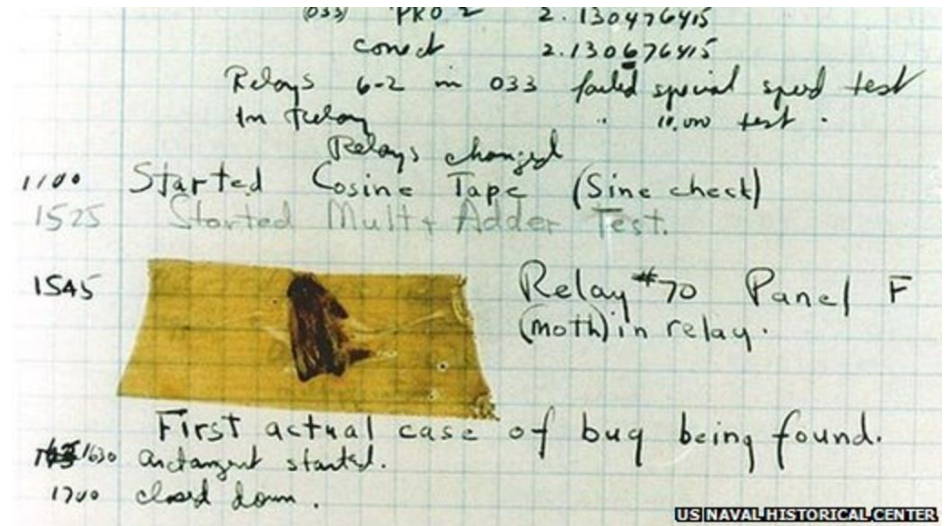 (033) PRO 2 2.130476415
conect 2.130676415
Relays 6-2 in 033 failed special speed test
In Relay " 10.000 test .
Relays changed
1100 Started Cosine Tape (Sine check)
1525 Started Mult + Adder Test.
1545 Relay #70 Panel F
(moth) in relay.
First actual case of bug being found.
1630 arctangent started.
1700 closed down.
US NAVAL HISTORICAL CENTER